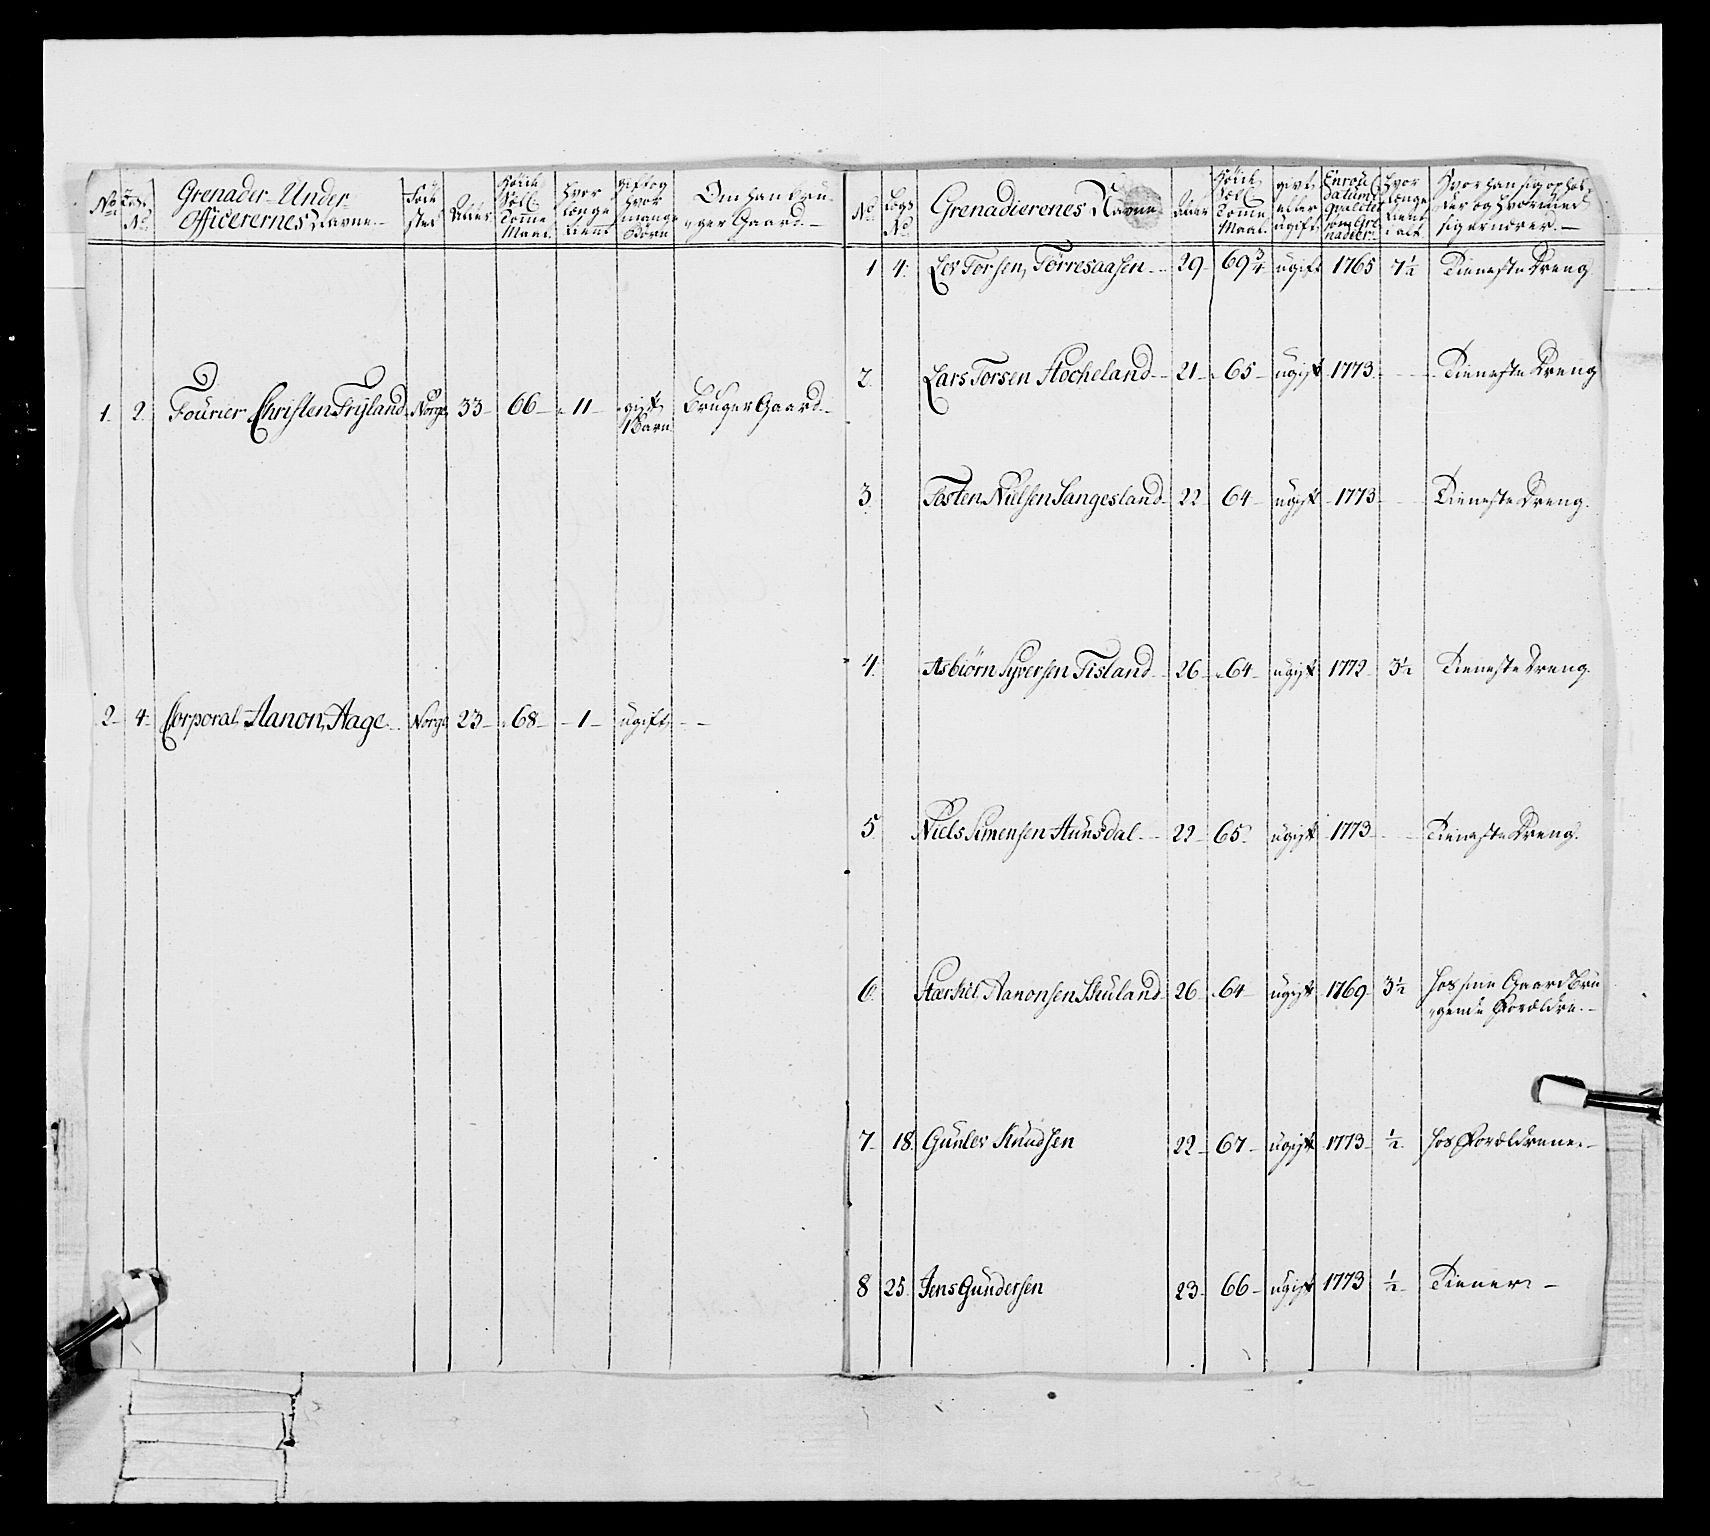 No
No
Grenader-Under
Officerernes Navne
Føde
sted
Alder
Høide
Soll
Tomme
Maal
hvor
længe
tient
gift og
hvor
mange
Børn
Om han bru-
ger Gaard
1. 2. Fourier Christen Frijland Norge 33 66 11 gift Bruger Gaard
1 Barn
2 4 Corporal Aanon Aage Norge 23 68 1 ugift
No
Logs
No
Grenadierenes Navne
Alder
Høide
Soll
Tomme
Maal
givt
eller
ugift
hvor
længe
tient
i alt
Hvor han sig ophol-
der og hvormed
sig ernærer
1 4 Torsen Tørresaasen 29 69 3/4 ugift 1765 7 1/2 Tieneste Dreng
2. Lars Torsen Stocheland 21 65 ugift 1773 Tieneste Dreng
3 Tosten Nielsen Sangesland 22 64 ugift 1773 Tieneste Dreng
4. Asbiørn Syversen Tisland 26 64 ugift 1772 3 1/2 Tieneste Dreng
5 Niels Simensen Aunsdal 22 65 ugift 1773 Tieneste Dreng
6 Stærkil Aanonsen Skuland 26 64 ugift 1769 3 1/2 hos sine Gaard Bru
gende Forældre
7 18 Gunler Knudsen 22 67 ugift 1773 1/2 hos Forældrene
8 25 Jens Gundersen 23 66 ugift 1773 1/2 Tiener